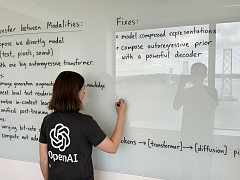 nsfer between Modalities:
pose we directly model
(text, pixels, sound)
th one big autoregressive transformer.
image generation augmented
knowledge
next level text rendering
native in-context
unified post-training
varying bit-rate
compute not
Fixes:
• model compressed representations
• compose autoregressive prior
with a powerful decoder
OpenAI
okens → [transformer] → [diffusion] pi